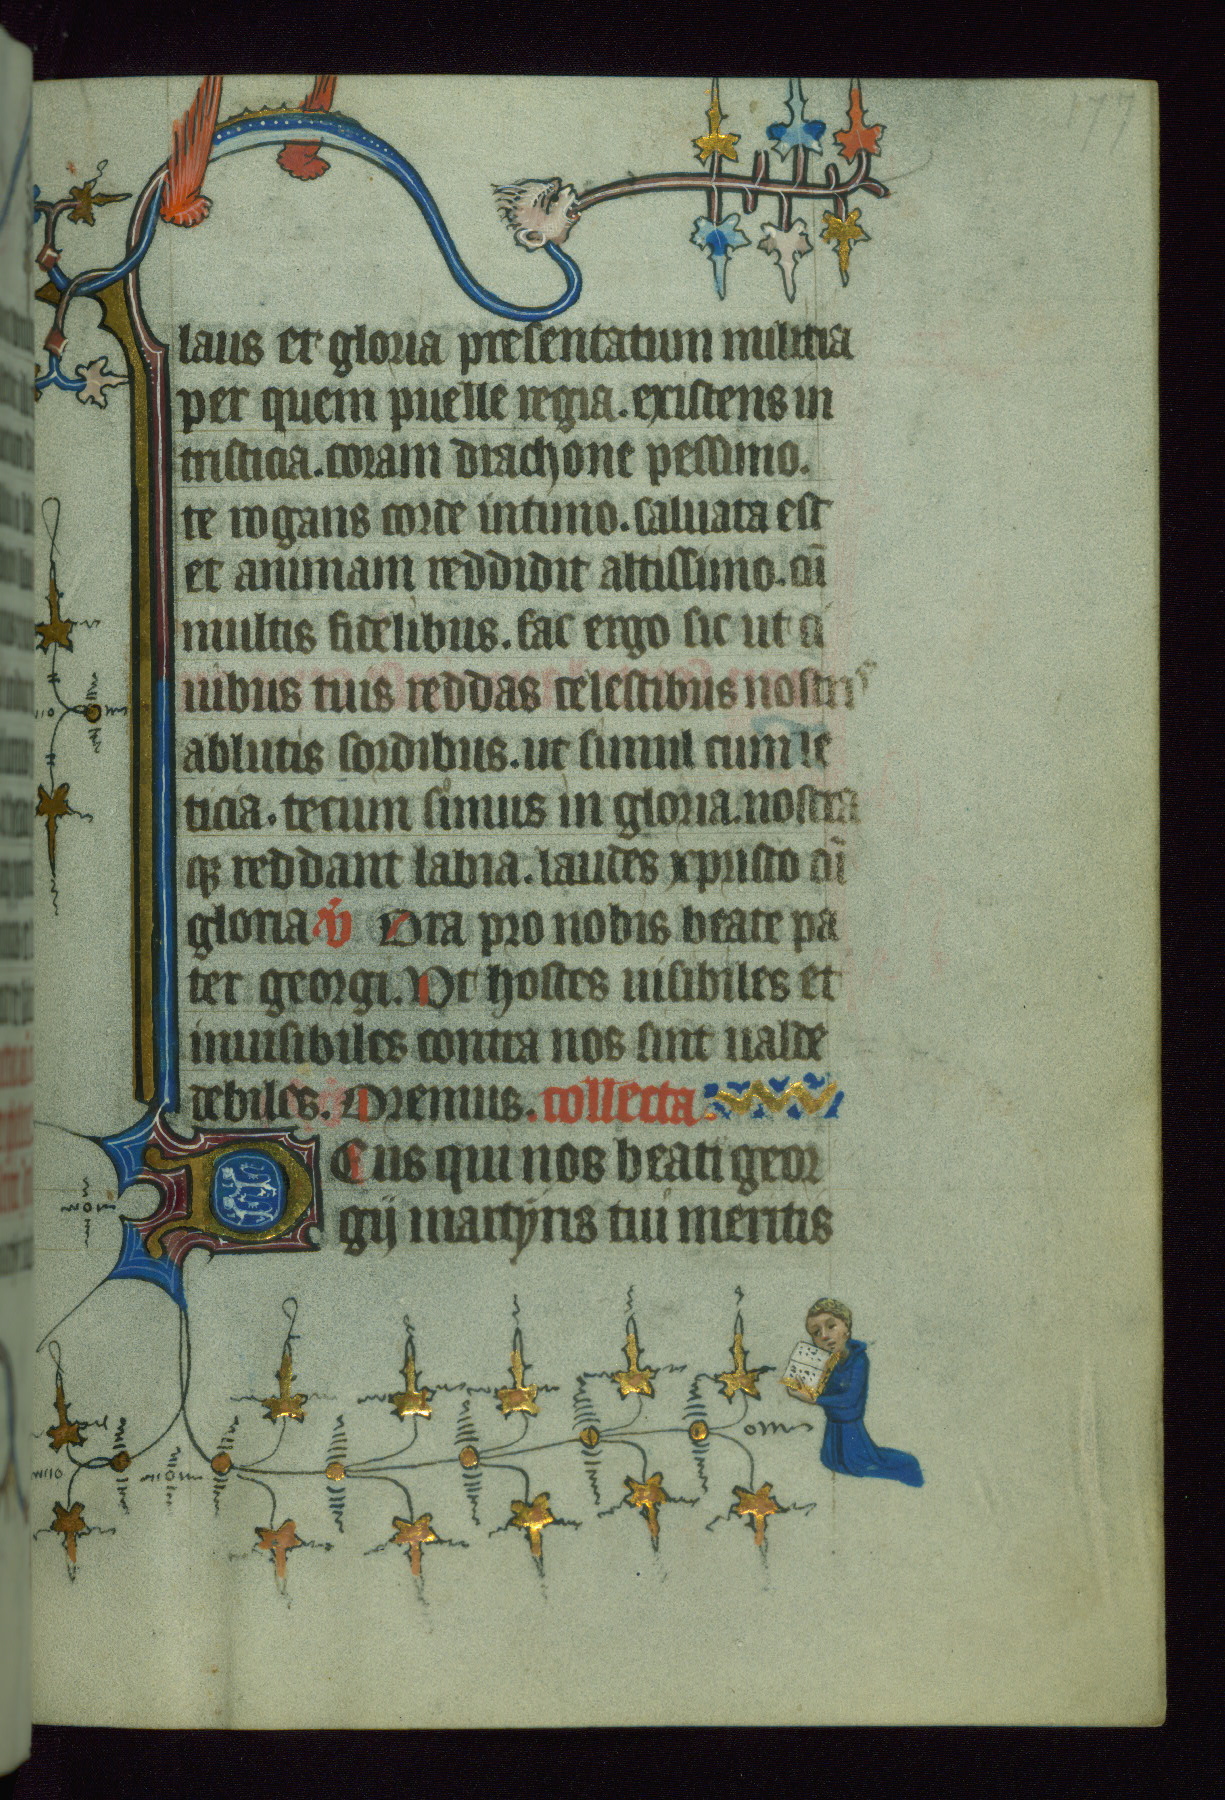 177
laus et gloria presentatium militia
per quem puelle regia. existens in
tristicia. coram drachone pessimo.
te rogans corde intimo. saluata est
et animam reddidit altissimo. cū
multis fidelibus. fac ergo sic ut ci
uibus tuis reddas celestibus nostris
ablutis sordibus. ut simul cum le
ticia. tecum simus in gloria. nostra
qȝ reddant labia. laudes xpristo cū
gloria v̄ Ora pro nobis beate pa
ter georgi. Vt hostes uisibiles et
inuisibiles contra nos sint ualde
debiles. Oremus. collecta
DEus qui nos beati geor
gij martyris tui meritis